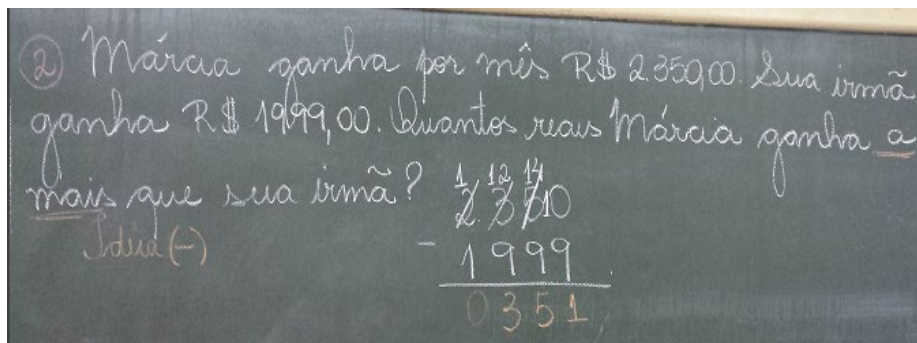 ② Márcia ganha por mês R$ 2.350,00. Sua irmã
ganha R$ 1999,00. Quantos reais Márcia ganha a
mais que sua irmã?
Idéia (-)
1 12 14
2.3510
- 1999
0351